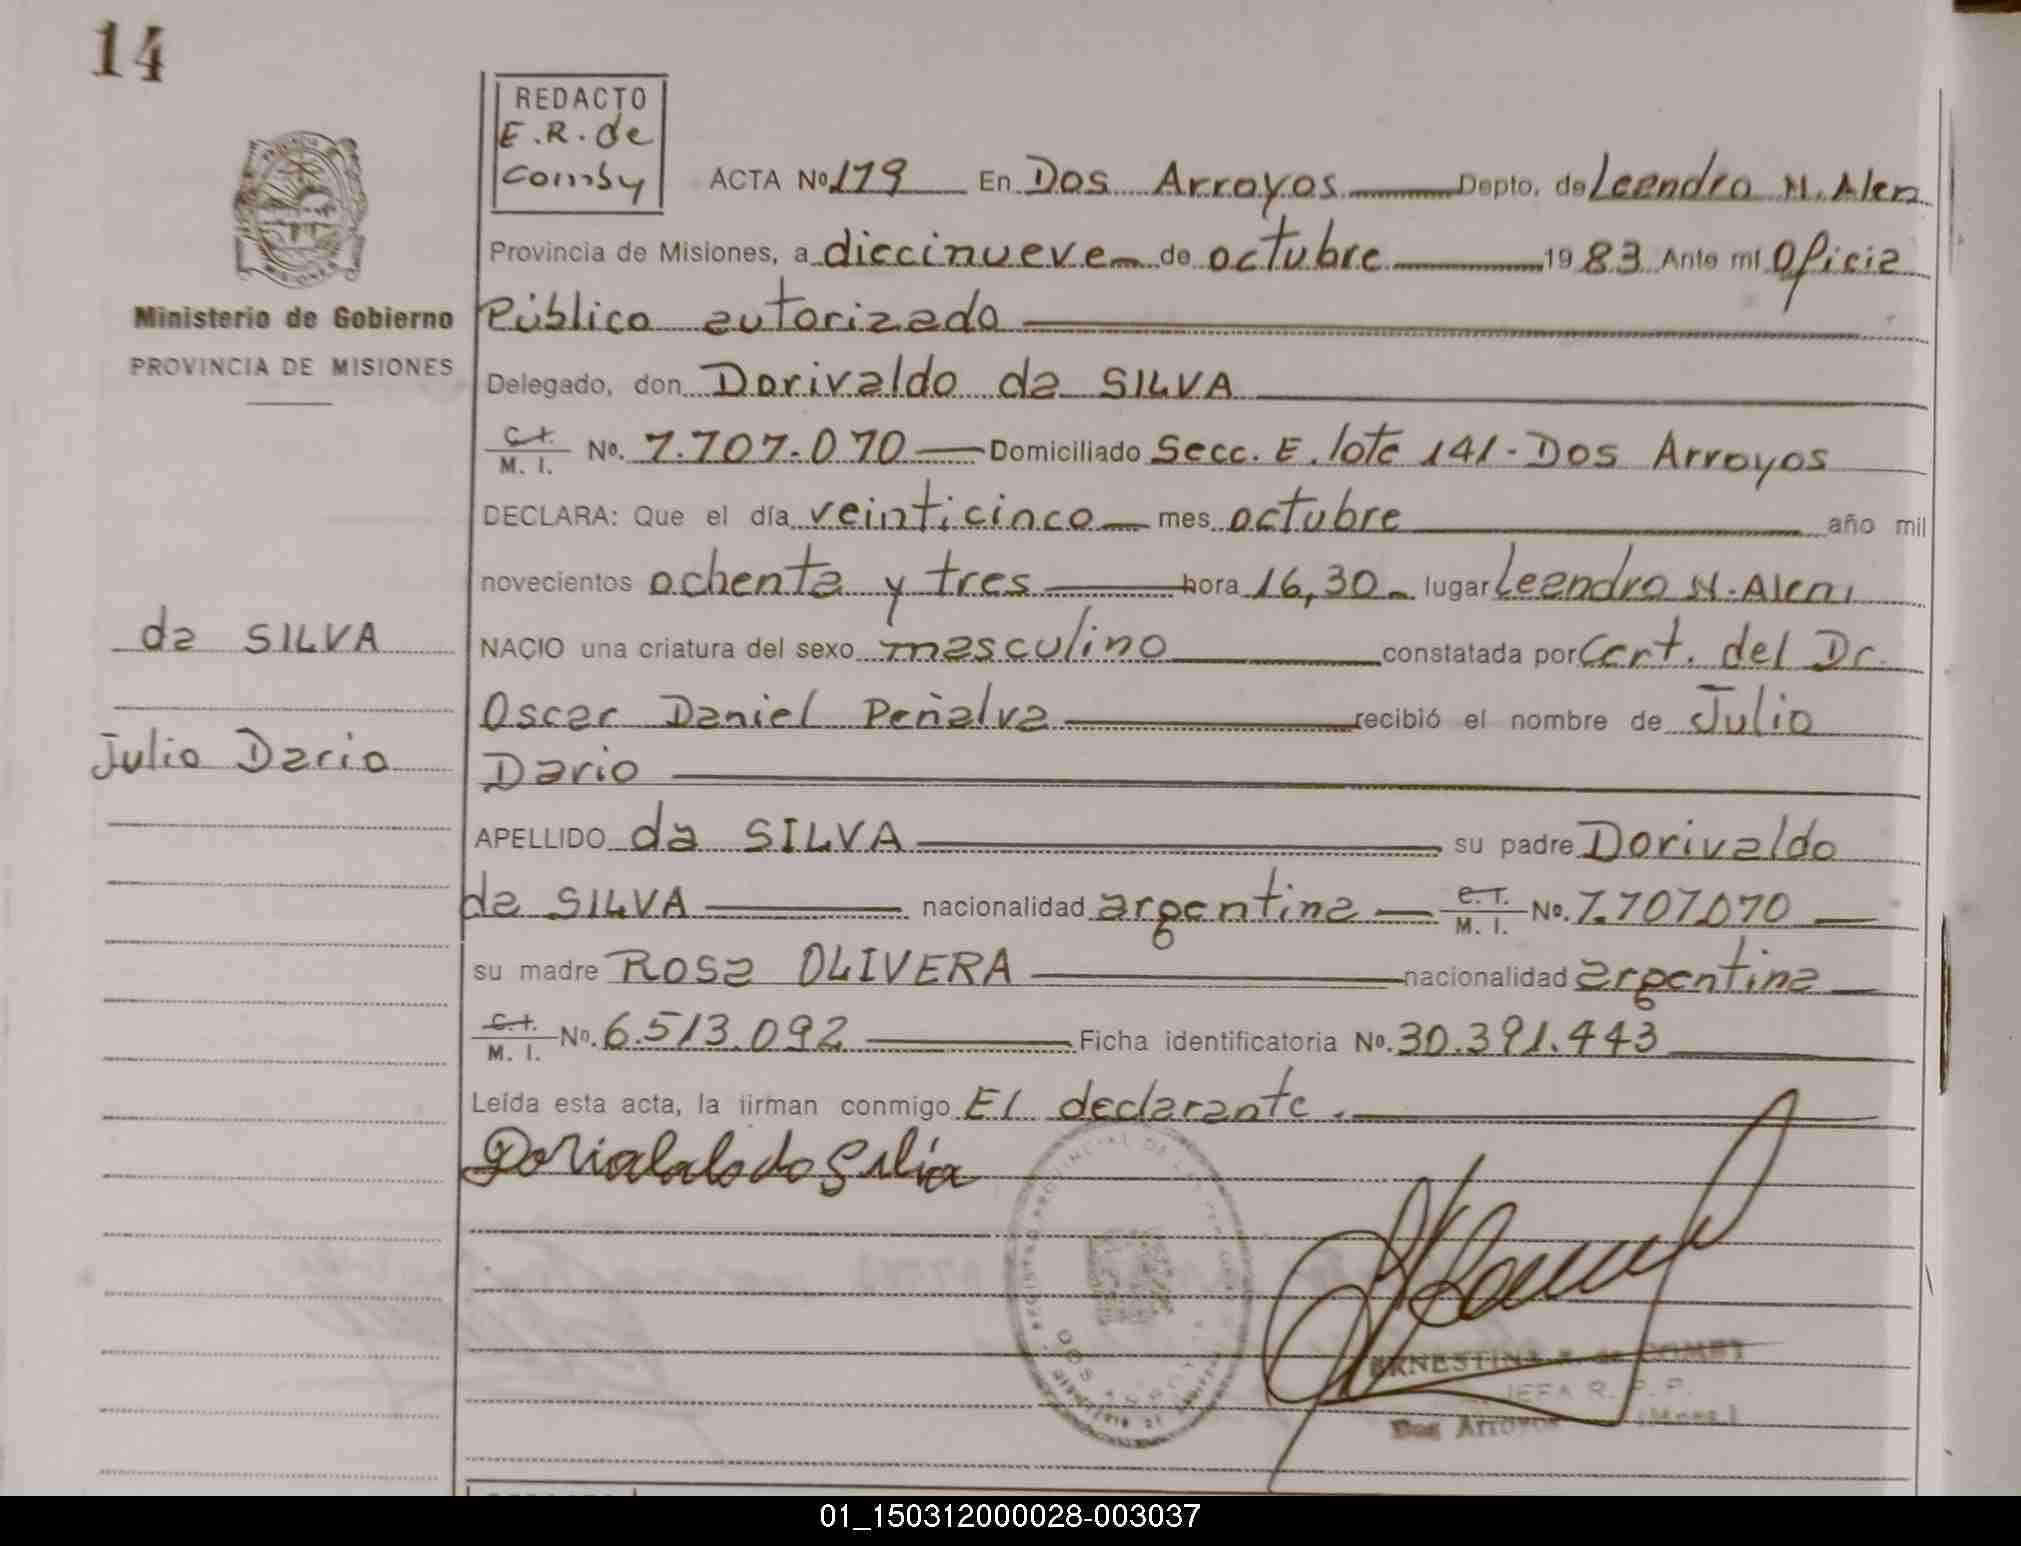 14
REDACTO
E.R. de
Comby
ACTA Nº 179 En Dos Arroyos Depto. de Leandro N. Alem
Provincia de Misiones, a diecinueve de octubre 1983 Ante mí Oficial
Público autorizado
Ministerio de Gobierno
PROVINCIA DE MISIONES
Delegado, don Dorivaldo da SILVA
C. I. M. I. No. 7.707.070 Domiciliado Secc. E. lote 141 - Dos Arroyos
DECLARA: Que el día veinticinco mes octubre año mil
novecientos ochenta y tres hora 16,30 lugar Leandro N. Alem
NACIO una criatura del sexo masculino constatada por Cert. del Dr.
Oscar Daniel Peñalva recibió el nombre de Julio
Dario
da SILVA
Julio Dario
APELLIDO da SILVA su padre Dorivaldo
da SILVA nacionalidad argentina C. I. M. I. No. 7.707.070
su madre Rosa OLIVERA nacionalidad argentina
C. I. M. I. No. 6.513.092 Ficha identificatoria No. 30.391.443
Leída esta acta, la firman conmigo El declarante.
DOS ARROYOS
JEFA R. P. P.
Dos Arroyos (Mnes.)
01_150312000028-003037